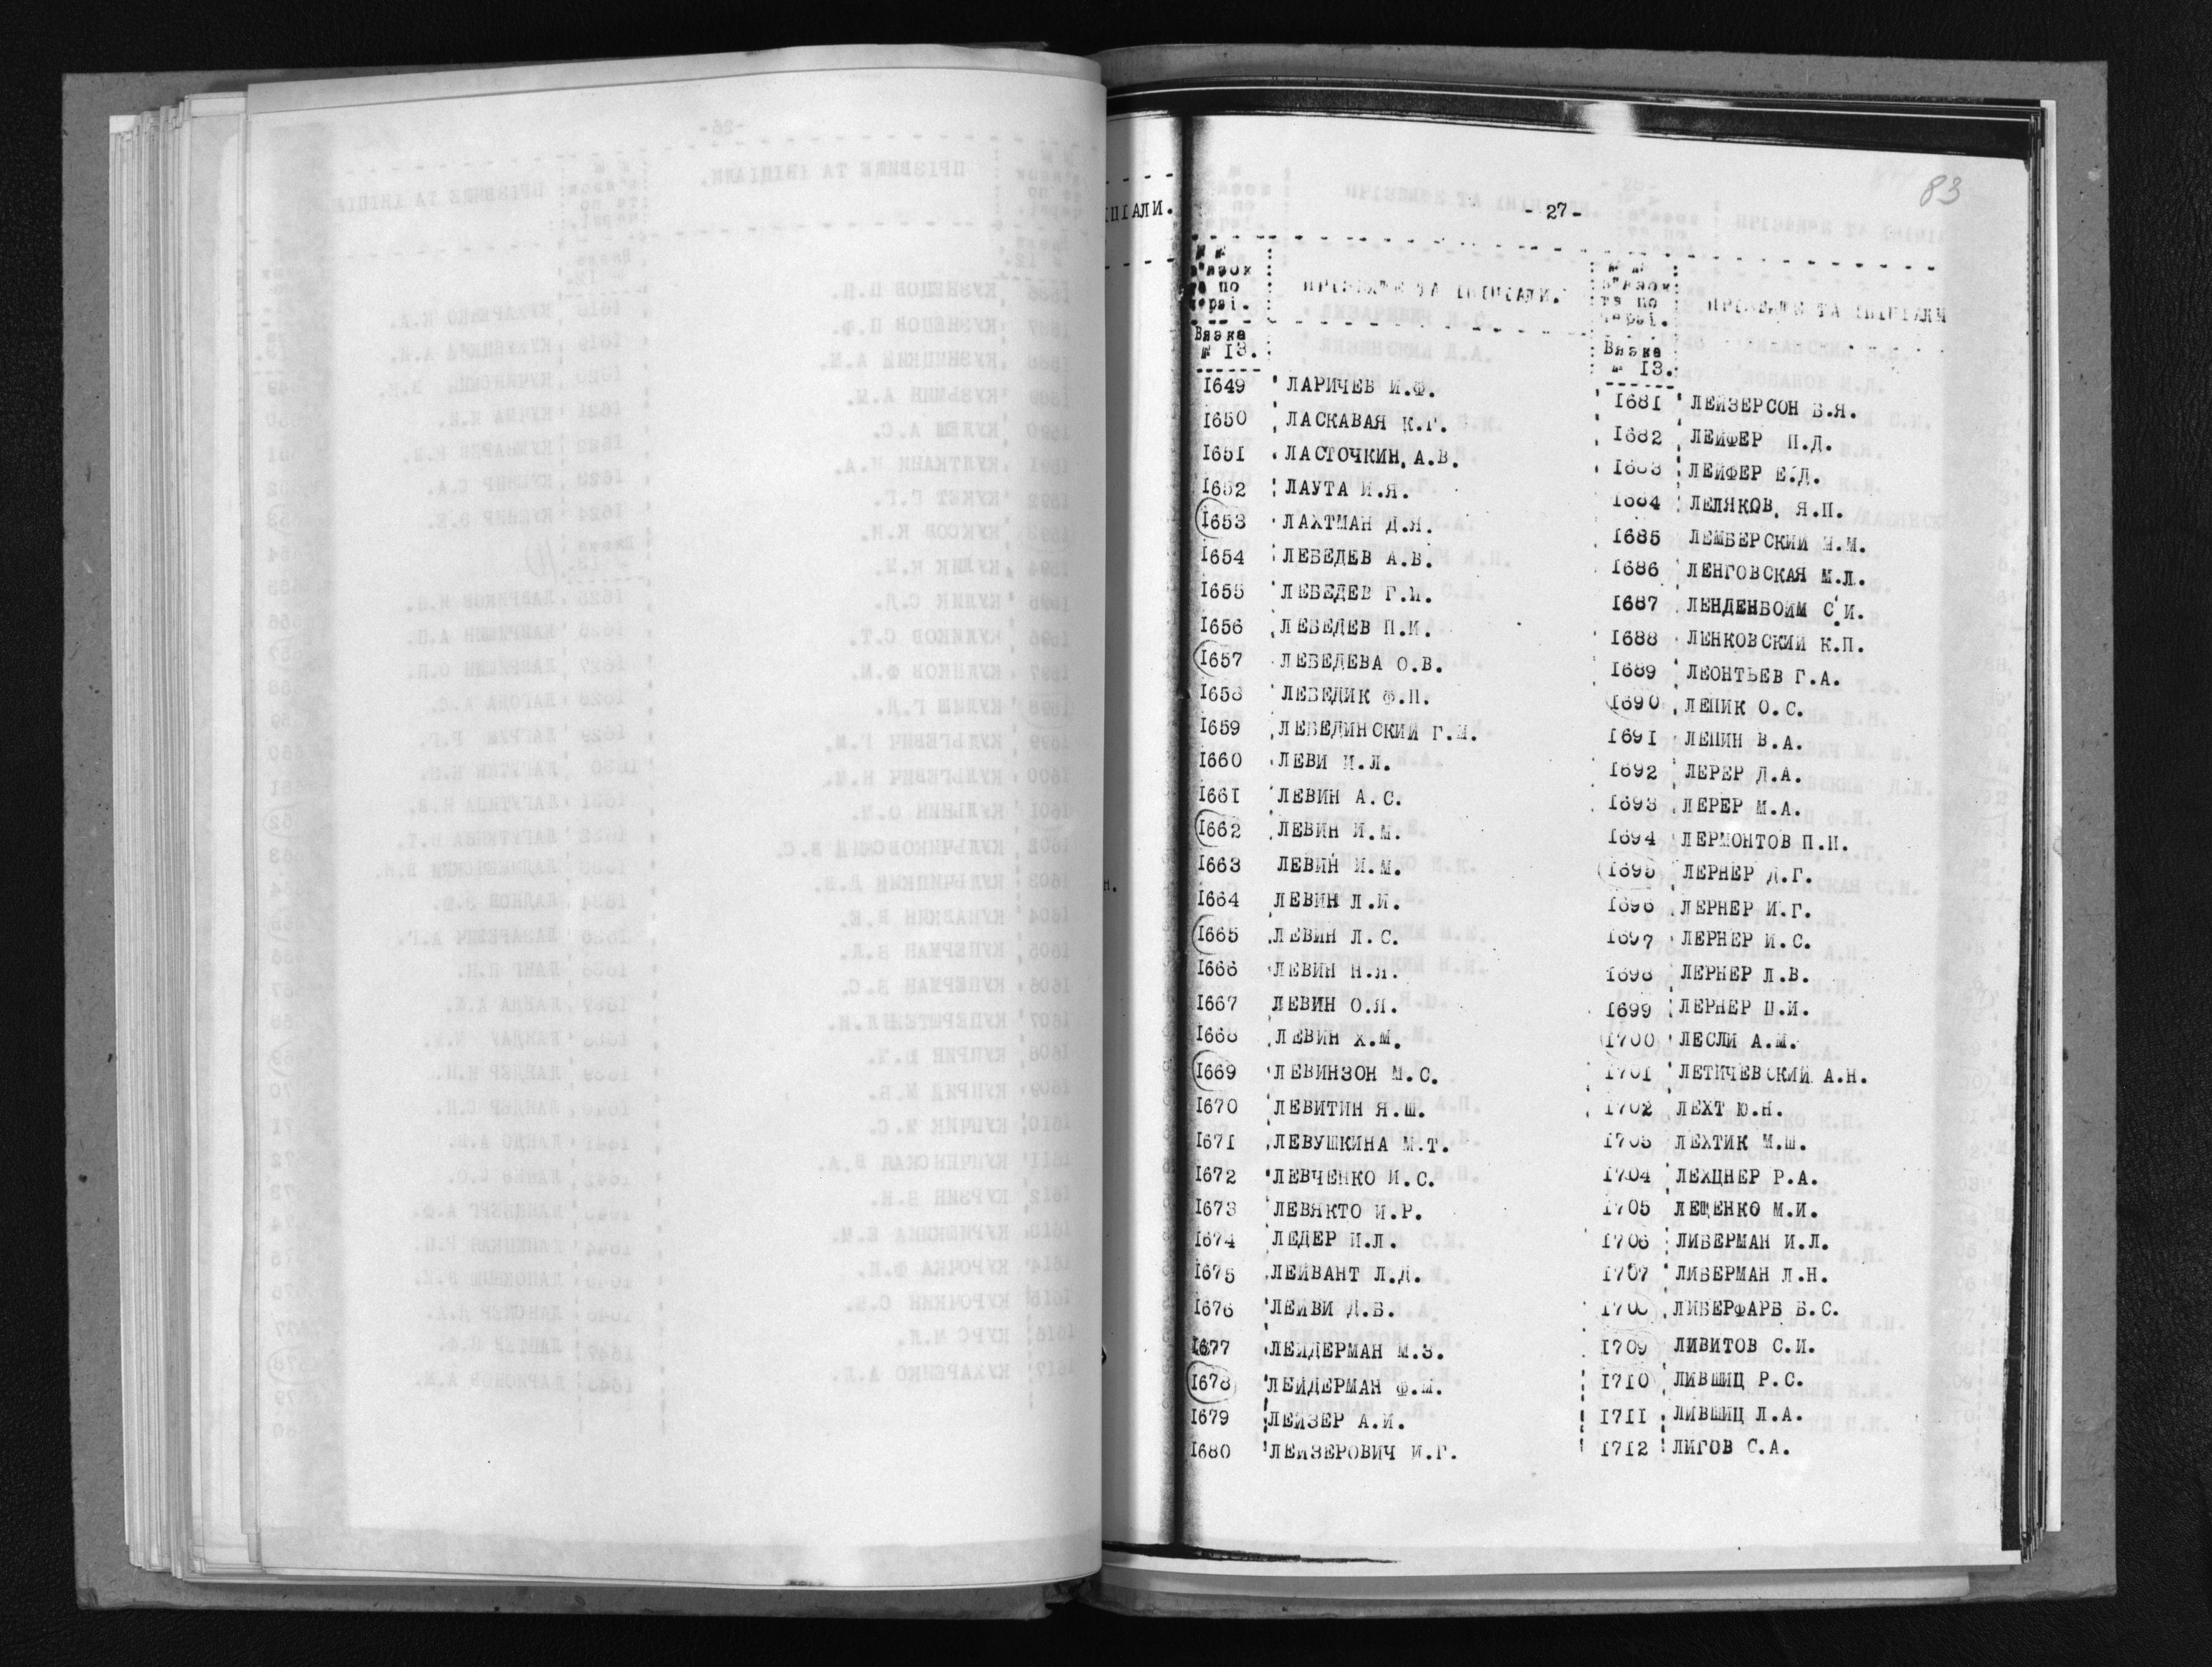 83
- 27 -
ПРІЗВИЩЕ ТА ІНІЦІАЛИ.
ПРІЗВИЩЕ ТА ІНІЦІАЛИ
Вязка № 13.
1649 ЛАРИЧЕВ И.Ф.
1650 ЛАСКАВАЯ К.Г.
1651 ЛАСТОЧКИН, А.В.
1652 ЛАУТА И.Я.
1653 ЛАХТМАН Д.Я.
1654 ЛЕБЕДЕВ А.В.
1655 ЛЕБЕДЕВ Г.И.
1656 ЛЕБЕДЕВ П.И.
1657 ЛЕБЕДЕВА О.В.
1658 ЛЕБЕДИК Ф.П.
1659 ЛЕБЕДИНСКИЙ Г.М.
1660 ЛЕВИ И.Л.
1661 ЛЕВИН А.С.
1662 ЛЕВИН И.М.
1663 ЛЕВИН И.М.
1664 ЛЕВИН Л.И.
1665 ЛЕВИН Л.С.
1666 ЛЕВИН Н.Я.
1667 ЛЕВИН О.Я.
1668 ЛЕВИН Х.М.
1669 ЛЕВИНЗОН М.С.
1670 ЛЕВИТИН Я.Ш.
1671 ЛЕВУШКИНА М.Т.
1672 ЛЕВЧЕНКО И.С.
1673 ЛЕВЯКТО И.Р.
1674 ЛЕДЕР И.Л.
1675 ЛЕЙВАНТ Л.Д.
1676 ЛЕЙВИ Д.Б.
1677 ЛЕЙДЕРМАН М.З.
1678 ЛЕЙДЕРМАН Ф.М.
1679 ЛЕЙЗЕР А.И.
1680 ЛЕЙЗЕРОВИЧ И.Г.
Вязка № 13.
1681 ЛЕЙЗЕРСОН Б.Я.
1682 ЛЕЙФЕР П.Д.
1683 ЛЕЙФЕР Е.Д.
1684 ЛЕЛЯКОВ, Я.П.
1685 ЛЕМБЕРСКИЙ М.М.
1686 ЛЕНГОВСКАЯ М.Л.
1687 ЛЕНДЕНБОЙМ С.И.
1688 ЛЕНКОВСКИЙ К.П.
1689 ЛЕОНТЬЕВ Г.А.
1690 ЛЕПИК О.С.
1691 ЛЕПИН В.А.
1692 ЛЕРЕР Д.А.
1693 ЛЕРЕР М.А.
1694 ЛЕРМОНТОВ П.Н.
1695 ЛЕРНЕР Д.Г.
1696 ЛЕРНЕР И.Г.
1697 ЛЕРНЕР И.С.
1698 ЛЕРНЕР Л.В.
1699 ЛЕРНЕР Ц.И.
1700 ЛЕСЛИ А.М.
1701 ЛЕТИЧЕВСКИЙ А.Н.
1702 ЛЕХТ Ю.Н.
1703 ЛЕХТИК М.Ш.
1704 ЛЕХЦНЕР Р.А.
1705 ЛЕЩЕНКО М.И.
1706 ЛИБЕРМАН И.Л.
1707 ЛИБЕРМАН Л.Н.
1708 ЛИБЕРФАРБ Б.С.
1709 ЛИВИТОВ С.И.
1710 ЛИВШИЦ Р.С.
1711 ЛИВШИЦ Л.А.
1712 ЛИГОВ С.А.